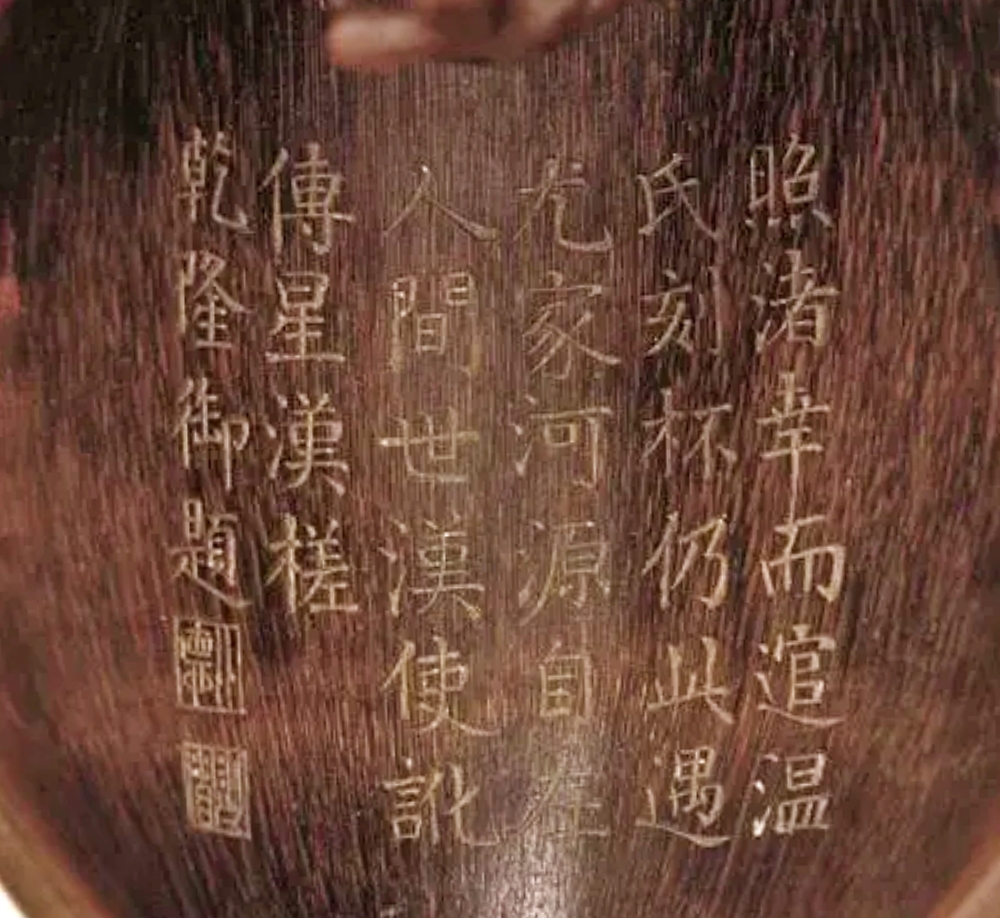 照渚幸而逭温
氏刻杯仍此遇
尤家河源自在
人間世漢使訛
傳星漢槎
乾隆御題